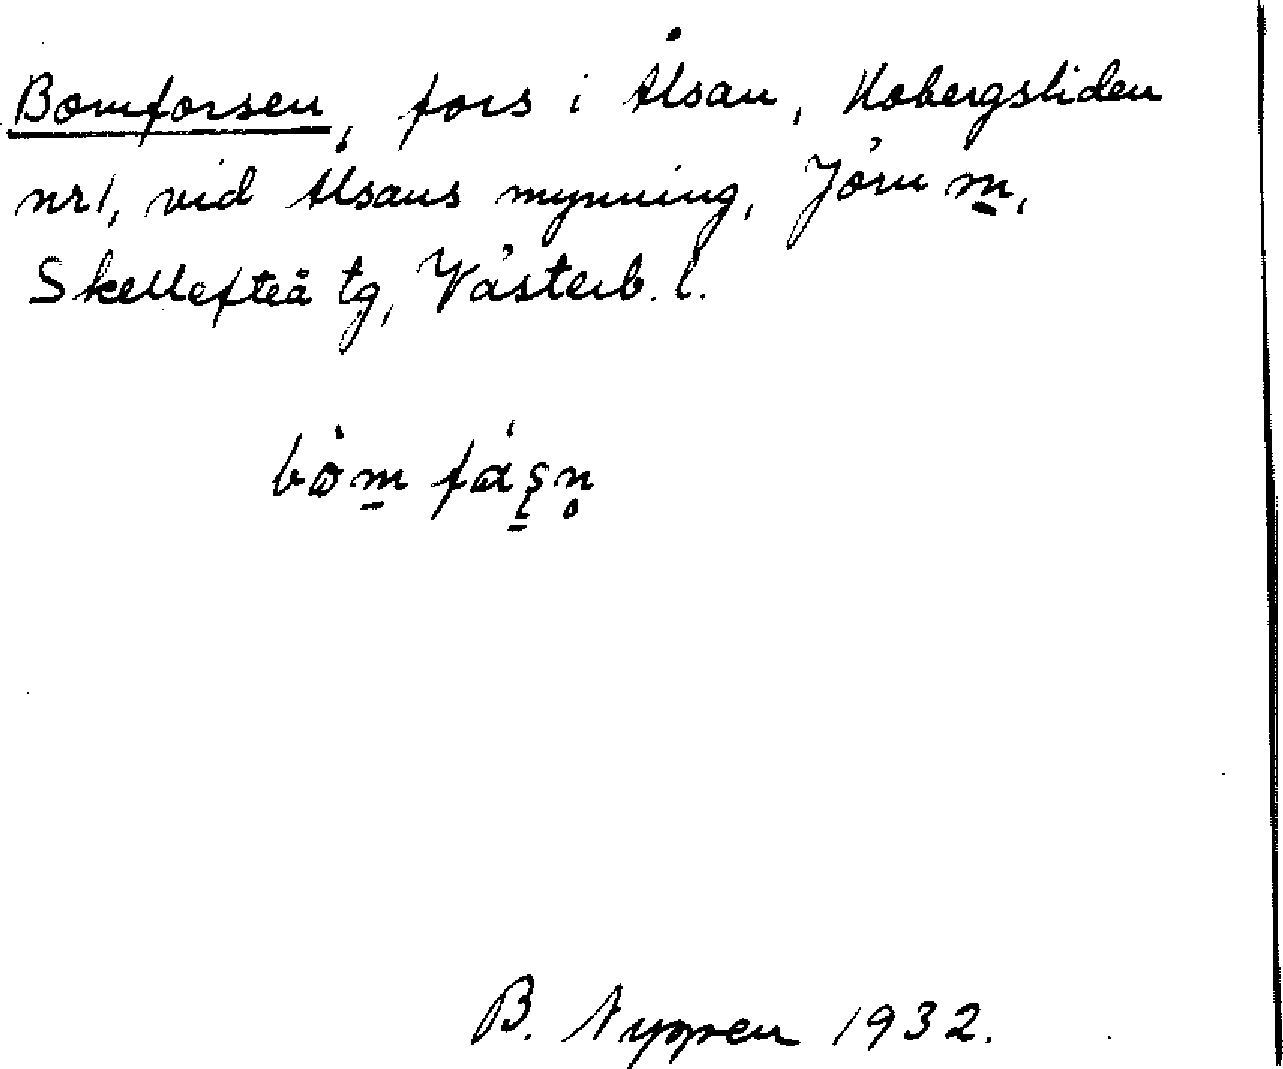 Bomforsen, fors i Ålsån, Kobergsliden
nr 1, vid Ålsåns mynning, Jörn m,
Skellefteå tg, Västerb. l.
B. Nyppen 1932.